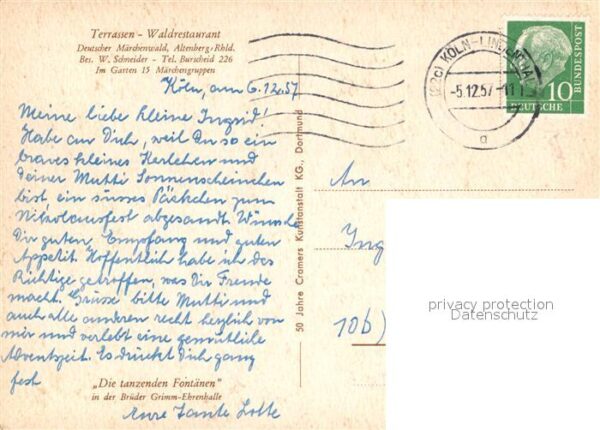 Terrassen - Waldrestaurant
Deutscher Märchenwald, Altenberg/Rhld.
Bes. W. Schneider - Tel. Burscheid 226
Im Garten 15 Märchengruppen
Köln, am 6.12.57
Meine liebe kleine Ingrid!
Habe an Dich, weil Du so ein
braves kleines Kerlchen und
Deiner Mutti Sonnenscheinchen
bist, ein süsses Päckchen zum
Nikolausfest abgesandt. Wünsche
Dir guten Empfang und guten
Appetit. Hoffentlich habe ich das
Richtige getroffen, was Dir Freude
macht. Grüsse bitte Mutti und
auch alle anderen recht herzlich von
mir und verlebt eine gemütliche
Adventszeit. Es drückt Dich ganz
fest
„Die tanzenden Fontänen"
in der Brüder Grimm-Ehrenhalle
Eure Tante Lotte
50 Jahre Cramers Kunstanstalt KG., Dortmund
(22c) KÖLN-LINDENTHAL
-5.12.57
a
10
DEUTSCHE
BUNDESPOST
An
Ing
10b)
privacy protection
Datenschutz